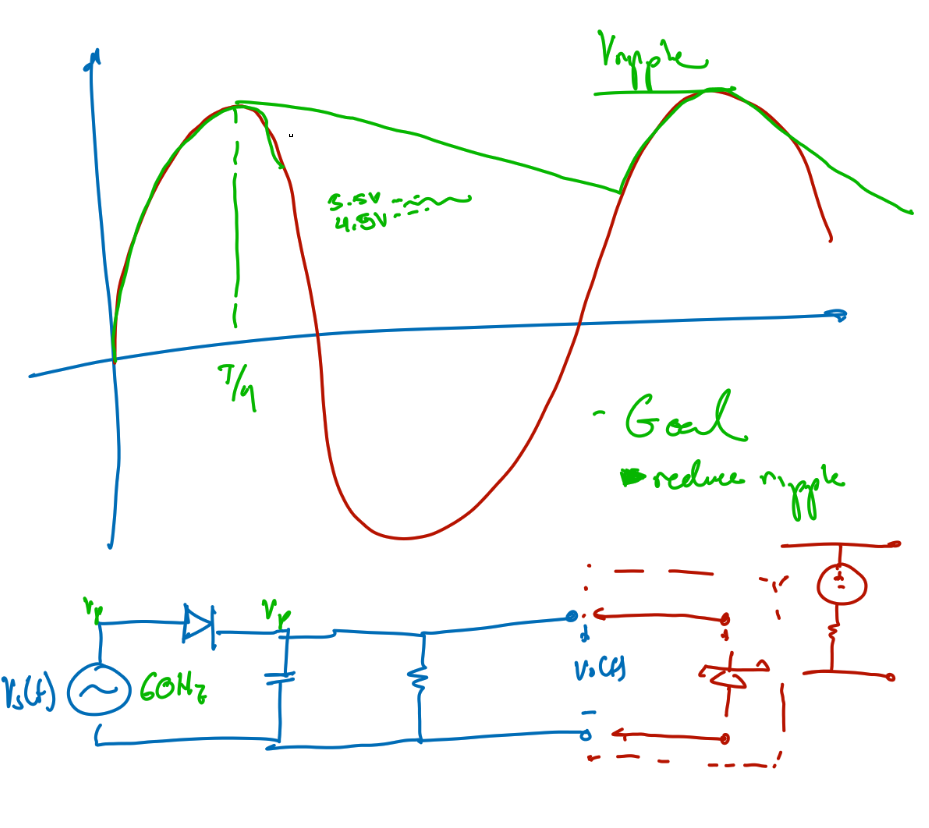 Vripple
5.5V
4.5V
T/4
- Goal
reduce ripple
Vp
Vp
Vs(t)
60Hz
+
Vo(t)
-
+
-